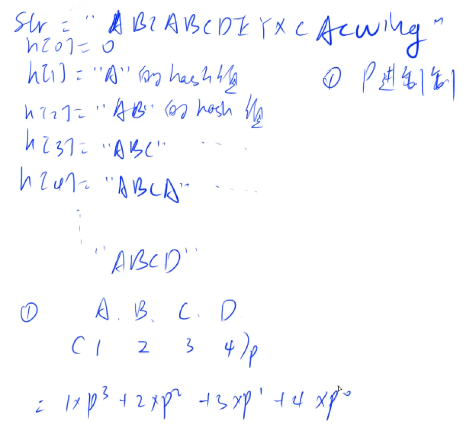 Str = "ABCABCDEYXCAcwing"
h[0] = 0
h[1] = "A" 的 hash 值
① P进制
h[2] = "AB" 的 hash 值
h[3] = "ABC" ....
h[4] = "ABCA" ....
"ABCD"
① A. B. C. D
( 1 2 3 4 )p
= 1×p³ + 2×p² + 3×p¹ + 4×p⁰